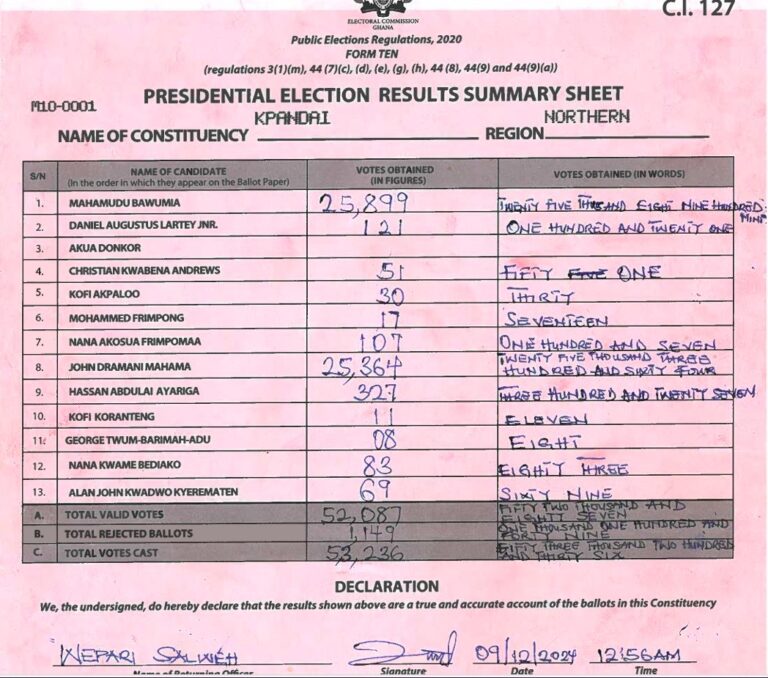 C.I. 127
ELECTORAL COMMISSION
GHANA
Public Elections Regulations, 2020
FORM TEN
(regulations 3(1)(m), 44 (7)(c), (d), (e), (g), (h), 44 (8), 44(9) and 44(9)(a))
M10-0001
PRESIDENTIAL ELECTION RESULTS SUMMARY SHEET
NAME OF CONSTITUENCY KPANDAI REGION NORTHERN
S/N NAME OF CANDIDATE (In the order in which they appear on the Ballot Paper) VOTES OBTAINED (IN FIGURES) VOTES OBTAINED (IN WORDS)
1. MAHAMUDU BAWUMIA 25,899 TWENTY FIVE THOUSAND EIGHT NINE HUNDRED NINE
2. DANIEL AUGUSTUS LARTEY JNR. 121 ONE HUNDRED AND TWENTY ONE
3. AKUA DONKOR
4. CHRISTIAN KWABENA ANDREWS 51 FIFTY FIVE ONE
5. KOFI AKPALOO 30 THIRTY
6. MOHAMMED FRIMPONG 17 SEVENTEEN
7. NANA AKOSUA FRIMPOMAA 107 ONE HUNDRED AND SEVEN
8. JOHN DRAMANI MAHAMA 25,364 TWENTY FIVE THOUSAND THREE HUNDRED AND SIXTY FOUR
9. HASSAN ABDULAI AYARIGA 327 THREE HUNDRED AND TWENTY SEVEN
10. KOFI KORANTENG 11 ELEVEN
11. GEORGE TWUM-BARIMAH-ADU 08 EIGHT
12. NANA KWAME BEDIAKO 83 EIGHTY THREE
13. ALAN JOHN KWADWO KYEREMATEN 69 SIXTY NINE
A. TOTAL VALID VOTES 52,087 FIFTY TWO THOUSAND AND EIGHTY SEVEN
B. TOTAL REJECTED BALLOTS 1,149 ONE THOUSAND ONE HUNDRED AND FORTY NINE
C. TOTAL VOTES CAST 53,236 FIFTY THREE THOUSAND TWO HUNDRED AND THIRTY SIX
DECLARATION
We, the undersigned, do hereby declare that the results shown above are a true and accurate account of the ballots in this Constituency
09/12/2024 12:56AM
Name of Returning Officer Signature Date Time